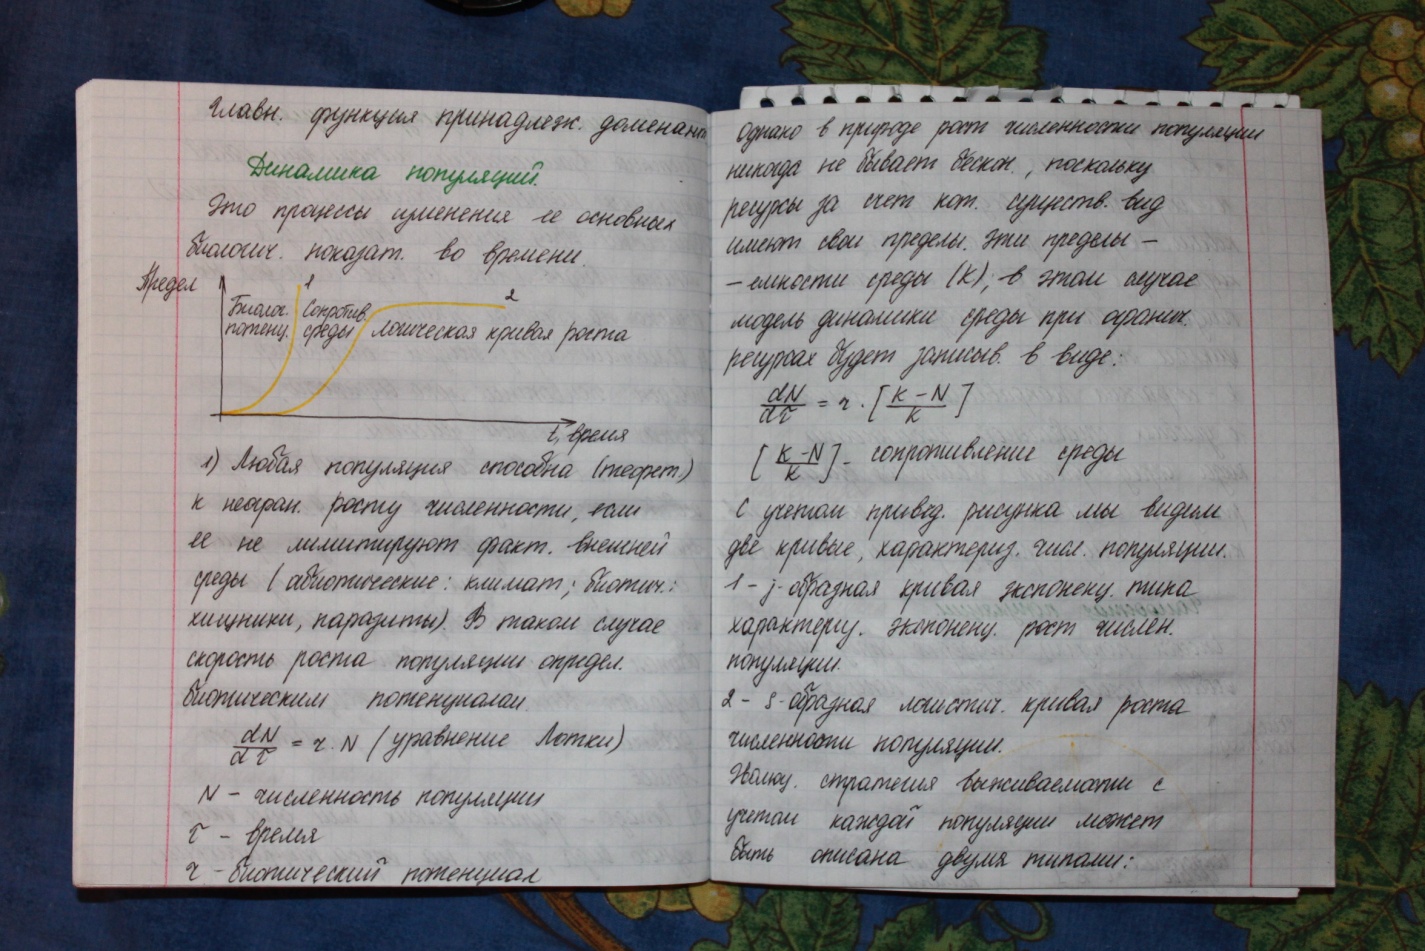 главн. функция принадлеж. доменант
Динамика популяций.
Это процессы изменения ее основных
биологич. показат. во времени.
Предел
1
2
Биолог. потенц.
Сопротив. среды
Логическая кривая роста
t, время
1) Любая популяция способна (теорет.)
к неогран. росту численности, если
ее не лимитируют факт. внешней
среды (абиотические: климат; биотич.:
хищники, паразиты). В таком случае
скорость роста популяции определ.
биотическим потенциалом.
dN/dτ = r · N (уравнение Лотки)
N - численность популяции
τ - время
r - биотический потенциал
Однако в природе рост численности популяции
никогда не бывает бескон., поскольку
ресурсы за счет кот. существ. вид
имеют свои пределы. Эти пределы -
- емкости среды (K), в этом случае
модель динамики среды при огранич.
ресурсах будет записыв. в виде:
dN/dτ = r · [K - N / K]
[K - N / K] - сопротивление среды
С учетом привед. рисунка мы видим
две кривые, характериз. числ. популяции.
1 - j-образная кривая экспоненц. типа
характериз. экспоненц. рост числен.
популяции.
2 - S-образная логистич. кривая роста
численности популяции.
Эволюц. стратегия выживаемости с
учетом каждой популяции может
быть описана двумя типами: